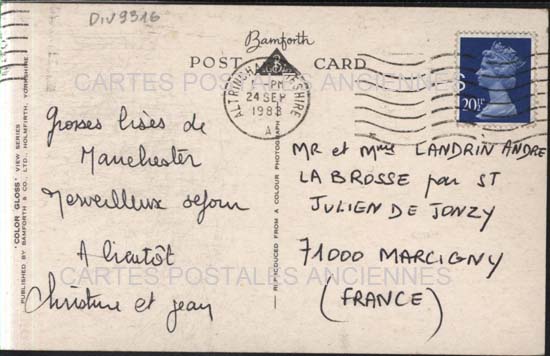 DIV9316
Bamforth
POST CARD
ALTRINCHAM CHESHIRE
-PM
24 SEP
1983
A
20½
CARTES POSTALES ANCIENNES
Grosses bises de
Manchester
Merveilleux séjour
A bientôt
Christine et Jean
MR et Mme LANDRIN ANDRE
LA BROSSE par ST
JULIEN DE JONZY
71000 MARCIGNY
(FRANCE)
CARTES POSTALES ANCIENNES
"COLOR GLOSS" VIEW SERIES
PUBLISHED BY BAMFORTH & CO. LTD., HOLMFIRTH, YORKSHIRE
REPRODUCED FROM A COLOUR PHOTOGRAPH